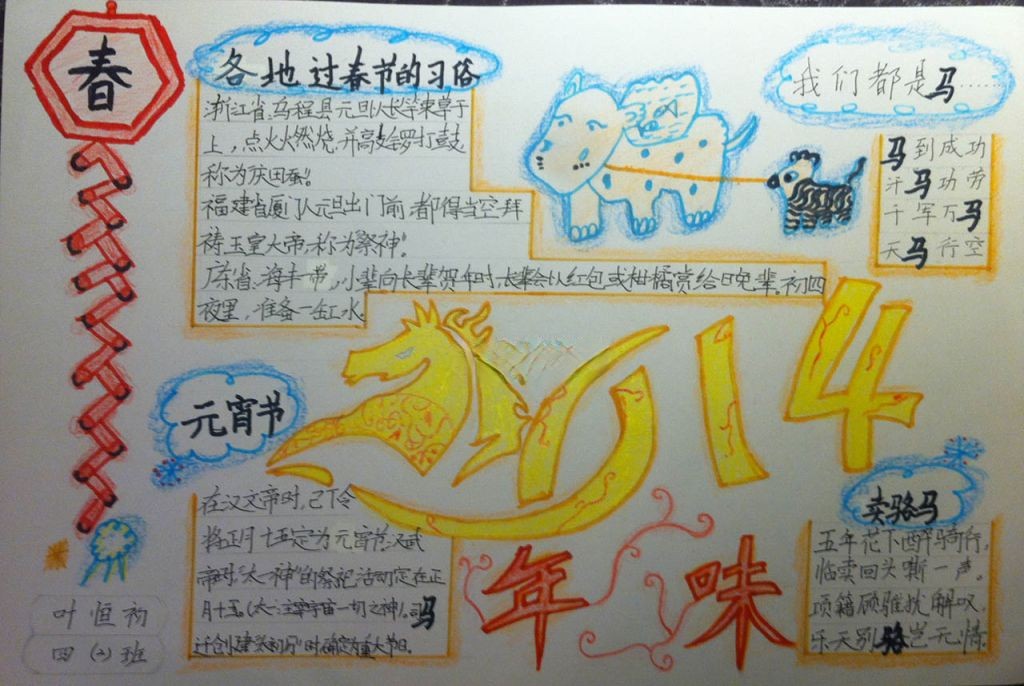 春
各地过春节的习俗
浙江省:乌程县元旦以长竿束草于
上，点火燃烧,并高敲锣打鼓
称为庆田蚕!
福建省厦门人元旦出门前都得当空拜
祷玉皇大帝,称为祭神!
广东省:海丰一带,小辈向长辈贺年时,长辈会以红包或柑橘赏给晚辈.初四
夜里，准备一缸水.
我们都是马……
马到成功
汗马功劳
千军万马
天马行空
2014
元宵节
在汉文帝时,已下令
将正月十五定为元宵节.汉武
帝时"太一神"的祭祀活动定在正
月十五.(太一:主宰宇宙一切之神).司马
迁创建"太初历"时确定为重大节日.
年味
卖骆马
五年花下醉骑行,
临卖回头嘶一声。
项籍顾骓犹解叹,
乐天别骆岂无情.
叶恒初
四(2)班